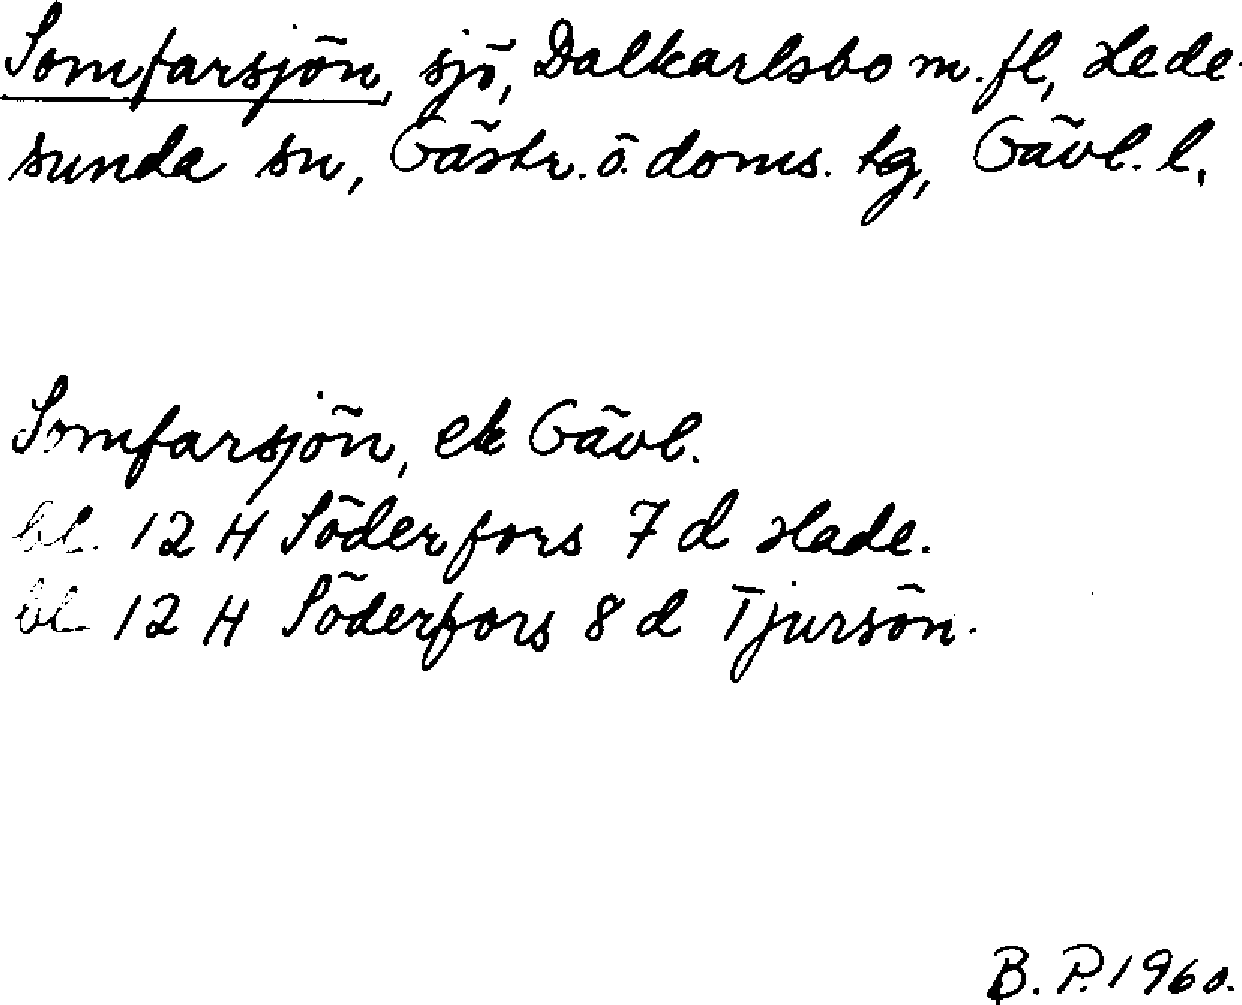 Somfarsjön, sjö, Dalkarlsbo m.fl, Hede-
sunda sn, Gästr. ö. doms. tg, Gävl. l.
Somfarsjön, ek Gävl.
bl. 12 H Söderfors 7 d Hade.
bl 12 H Söderfors 8 d Tjursön.
B. P. 1960.